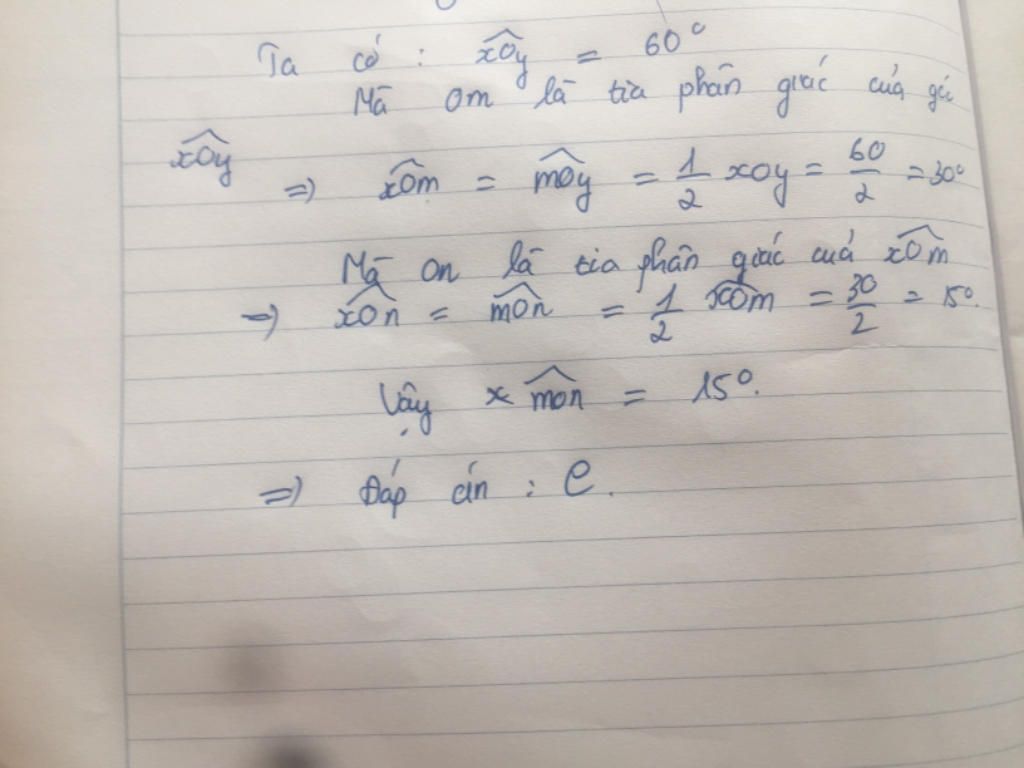 Ta có : xOy = 60°
Mà Om là tia phân giác của góc
xOy
=> xOm = mOy = 1/2 xOy = 60/2 = 30°
Mà On là tia phân giác cuả xOm
=> xOn = mOn = 1/2 xOm = 30/2 = 15°.
Vậy x mon = 15°.
=> Đáp án : C.